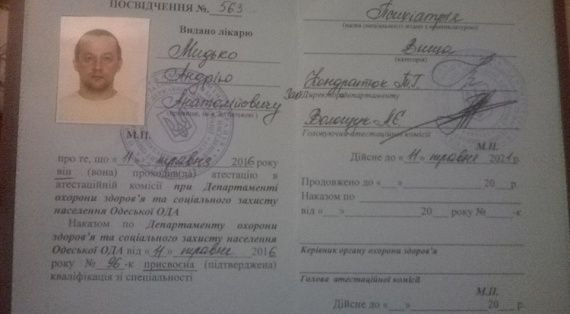 ПОСВІДЧЕННЯ №. 563
Видано лікарю
Мидько
Андрію
Анатолійовичу
М.П.
про те, що « 11 » травня 2016 року
він (вона) проходив(ла) атестацію в
атестаційній комісії при Департаменті
охорони здоров'я та соціального захисту
населення Одеської ОДА
Наказом по Департаменту охорони
здоров'я та соціального захисту населення
Одеської ОДА від « 11 » травня 2016
року № 96 -к присвоєна (підтверджена)
кваліфікація зі спеціальності
Психіатрія
Вища
(категорія)
Директор департаменту
Волощук
Голова атестаційної комісії
М.П.
Дійсне до « 11 » травня 2021 р.
Продовжено до « » 20 р.
Наказом по
від « » 20 року № -к
Керівник органу охорони здоров'я
Голова атестаційної комісії
М.П.
Дійсне до « » 20 р.